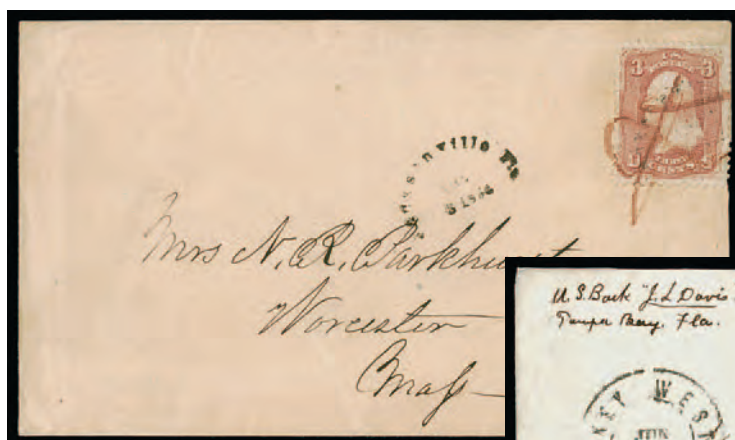 3 3
Jacksonville Fla
Mrs N. R. Parkhurst
Worcester
Mass
U.S. Bark "J. L. Davis"
Tampa Bay. Fla.
KEY WEST
JUN